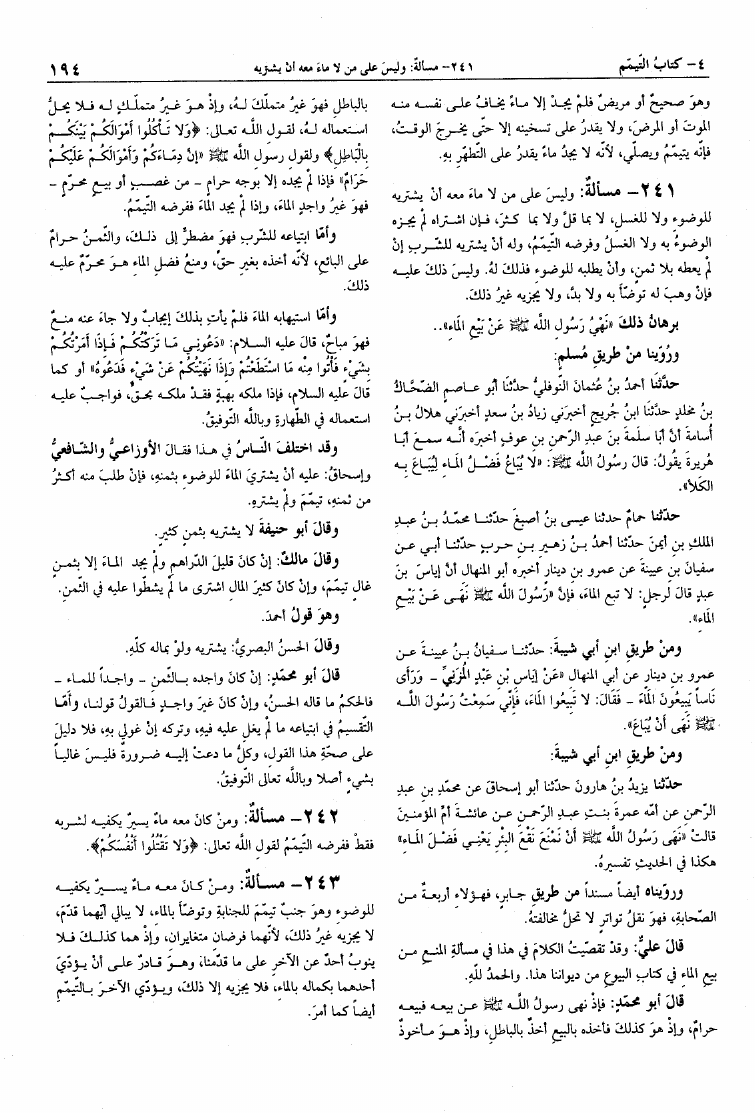 ٤- كتابُ التّيمّم
٢٤١- مسألةٌ: وليسَ على من لا ماءَ معه أنْ يشتريه
١٩٤
وهوَ صحيحٌ أو مريضٌ فلمْ يجدْ إلا ماءً يخافُ على نفسه منه
الموتَ أو المرضَ، ولا يقدرُ على تسخينه إلا حتّى يخرجَ الوقتُ،
فإنّه يتيمّمُ ويصلّي، لأنّه لا يجدُ ماءً يقدرُ على التّطهّرِ بهِ.
٢٤١- مسألةٌ: وليسَ على من لا ماءَ معه أنْ يشتريه
للوضوءِ ولا للغسلِ، لا بما قلَّ ولا بما كثرَ، فإن اشتراه لمْ يجزه
الوضوءُ به ولا الغسلُ وفرضه التّيمّمُ، وله أنْ يشتريه للشّربِ إنْ
لمْ يعطه بلا ثمنٍ، وأنْ يطلبه للوضوءِ فذلكَ لهُ. وليسَ ذلكَ عليه
فإنْ وهبَ له توضّأ به ولا بدَّ، ولا يجزيه غيرُ ذلكَ.
برهانُ ذلكَ «نَهْيُ رَسُولِ اللَّهِ ﷺ عَنْ بَيْعِ الْمَاءِ»..
ورُوّينا منْ طريقِ مُسلمٍ:
حدّثنَا أحمدُ بنُ عُثمانَ النّوفليُّ حدّثنَا أبو عـاصمٍ الضّحّاكُ
بنُ مخلدٍ حدّثنَا ابنُ جُريجٍ أخبرَني زيادُ بنُ سعدٍ أخبرَني هلالُ بـنُ
أسامةَ أنَّ أبَا سلَمةَ بنَ عبدِ الرّحمنِ بنِ عوفٍ أخبرَه أنَّـه سمـعَ أبَـا
هُريرةَ يقُولُ: قالَ رسُولُ اللَّه ﷺ: «لا يُبَاعُ فَضْـلُ الْمَـاءِ لِيُبَـاعَ بِـهِ
الْكَلأُ».
حدّثنَا حمامٌ حدثنا عيسى بـنُ أصبغَ حدّثنـا محمّـدُ بـنُ عبـدِ
الملكِ بنِ أيمنَ حدّثنَا أحمدُ بـنُ زهيرِ بـنِ حربٍ حدّثنَـا أبـي عـن
سفيانَ بنِ عيينةَ عن عمرو بنِ دينار أخبره أبو المنهالِ أنَّ إياسَ بنَ
عبدٍ قالَ لرجلٍ: لا تبع الماءَ، فإنَّ «رَسُولَ اللَّهِ ﷺ نَهَـى عَـنْ بَيْـعِ
الْمَاءِ».
ومنْ طريقِ ابنِ أبي شيبةَ: حدّثنـا سفيـانُ بـنُ عيينـةَ عـن
عمرو بن دينار عن أبي المنهال «عَنْ إيَاسِ بْنِ عَبْدٍ الْمُزَنِيِّ - وَرَأَى
نَاساً يَبِيعُونَ الْمَاءَ - فَقَالَ: لا تَبِيعُوا الْمَاءَ، فَإِنِّي سَمِعْتُ رَسُولَ اللَّـهِ
ﷺ نَهَى أَنْ يُبَاعَ».
ومنْ طريقِ ابنِ أبي شيبةَ:
حدّثنا يزيدُ بنُ هارونَ حدّثنا أبو إسحاقَ عن محمّدِ بنِ عبدِ
الرّحمنِ عن أمّه عمرةَ بنـتِ عبـدِ الرّحمـنِ عـن عائشـةَ أمِّ المؤمنـينَ
قالتْ «نَهَى رَسُولُ اللَّهِ ﷺ أَنْ نَمْنَعَ نَقْعَ الْبِئْرِ يَعْنِـي فَضْـلَ الْمَـاءِ»
هكذا في الحديثِ تفسيرهُ.
وروّيناه أيضاً مسنداً من طريقِ جـابرٍ، فهـؤلاءِ أربعـةٌ مـن
الصّحابةِ، فهوَ نقلُ تواترٍ لا تحلُّ مخالفتهُ.
قالَ عليٌّ: وقدْ تقصّيتُ الكلامَ في هذا في مسألةِ المنـعِ مـن
بيعِ الماءِ في كتابِ البيوعِ من ديواننا هذا. والحمدُ للَّهِ.
قالَ أبو محمّدٍ: فإذْ نهى رسولُ اللَّـه ﷺ عن بيعـه فبيعه
حرامٌ، وإذْ هوَ كذلكَ فأخذه بالبيعِ أخذٌ بالباطلِ، وإذْ هـوَ مـأخوذٌ
بالباطلِ فهوَ غيرُ متملّكَ لـهُ، وإذْ هـوَ غيرُ متملّـكٍ لـه فـلا يحلُّ
استعماله لـهُ، لقولِ اللَّـه تعالى: ﴿وَلا تَـأْكُلُوا أَمْوَالَكُـمْ بَيْنَكُـمْ
بِالْبَاطِلِ﴾ ولقولِ رسولِ اللَّهِ ﷺ «إنَّ دِمَـاءَكُمْ وَأَمْوَالَكُـمْ عَلَيْكُـمْ
حَرَامٌ» فإذا لمْ يجده إلا بوجه حرامٍ - من غصـبٍ أو بيـعٍ محـرّمٍ -
فهوَ غيرُ واجدٍ الماءَ، وإذا لمْ يجد الماءَ ففرضه التّيمّمُ.
وأمّا ابتياعه للشّربِ فهوَ مضطرٌّ إلى ذلـكَ، والثّمـنُ حـرامٌ
على البائعِ، لأنّه أخذه بغيرِ حقٍّ، ومنعُ فضلِ الماءِ هـوَ محـرّمٌ عليـه
ذلكَ.
وأمّا استيهابه الماءَ فلمْ يأتِ بذلكَ إيجابٌ ولا جاءَ عنه منـعٌ
فهوَ مباحٌ، قالَ عليه السلام: «دَعُونِـي مَـا تَرَكْتُكُـمْ فَـإِذَا أَمَرْتُكُـمْ
بِشَيْءٍ فَأْتُوا مِنْهُ مَا اسْتَطَعْتُمْ وَإِذَا نَهَيْتُكُمْ عَنْ شَيْءٍ فَدَعُوهُ» أو كما
قالَ عليه السلام، فإذا ملكه بهبةٍ فقـدْ ملكـه بحـقٍّ، فواجـبٌ عليـه
استعماله في الطّهارةِ وباللَّهِ التّوفيقُ.
وقد اختلفَ النّـاسُ في هـذا فقـالَ الأوزاعـيُّ والشّـافعيُّ
وإسحاقُ: عليه أنْ يشتريَ الماءَ للوضوءِ بثمنهِ، فإنْ طلبَ منه أكثرُ
من ثمنهِ، تيمّمَ ولمْ يشترهِ.
وقالَ أبو حنيفةَ لا يشتريه بثمنٍ كثيرٍ.
وقالَ مالكٌ: إنْ كانَ قليلَ الدّراهمِ ولمْ يجد الماءَ إلا بثمـنٍ
غالٍ تيمّمَ، وإنْ كانَ كثيرَ المالِ اشترى ما لمْ يشطّوا عليه في الثّمنِ.
وهوَ قولُ أحمدَ.
وقالَ الحسنُ البصريُّ: يشتريه ولوْ بماله كلّهِ.
قالَ أبو محمّدٍ: إنْ كانَ واجده بـالثّمنِ - واجـداً للمـاءِ -
فالحكمُ ما قاله الحسنُ، وإنْ كانَ غيرَ واجـدٍ فـالقولُ قولنـا، وأمّـا
التّقسيمُ في ابتياعه ما لمْ يغلِ عليه فيهِ، وتركه إنْ غوليَ بهِ، فلا دليلَ
على صحّةِ هذا القولِ، وكلُّ ما دعتْ إليـه ضـرورةٌ فليـسَ غاليـاً
بشيءٍ أصلا وباللَّه تعالى التّوفيقُ.
٢٤٢- مسألةٌ: ومن كانَ معه ماءٌ يسيرٌ يكفيه لشربه
فقطْ ففرضه التّيمّمُ لقولِ اللَّه تعالى: ﴿وَلا تَقْتُلُوا أَنْفُسَكُمْ﴾.
٢٤٣- مسألةٌ: ومـنْ كـانَ معـه مـاءٌ يسـيرٌ يكفيـه
للوضوءِ وهوَ جنبٌ تيمّمَ للجنابةِ وتوضّأ بالماءِ، لا يبالي أيّهما قدّمَ،
لا يجزيه غيرُ ذلكَ، لأنّهما فرضانِ متغايرانِ، وإذْ هما كذلـكَ فـلا
ينوبُ أحدٌ عن الآخرِ على ما قدّمنَا، وهـوَ قـادرٌ علـى أنْ يـؤدّيَ
أحدهما بكماله بالماءِ، فلا يجزيه إلا ذلكَ، ويـؤدّي الآخـرَ بـالتّيمّمِ
أيضاً كما أمرَ.